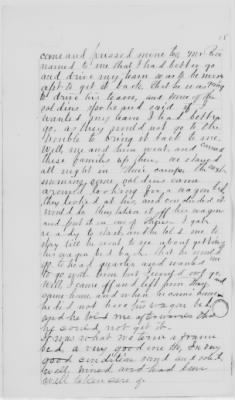 18
come and pressed mine too. Mr
named to me that I had better go
and drive my team was to be more
apt to get it back, that he was going
to drive his team, and some of the
soldiers spoke and said if I
wanted my team I had better
go, as they would not go to the
trouble to bring it back to me.
Well, me and him went, and
these families up there, we stayed
all night in their camp. the next
morning some soldiers came
around looking for a wagon bed,
they looked at his, and concluded it
would do, they taken it off his wagon
and put it on one of theirs. I got
ready to start and he told me to
stay till he went to see about getting
his wagon bed back. that he would
to head quarters and wanted me
to go with him but I would not go.
Well, I came off and left him
came home, and when he came home
he did not have his wagon bed,
and he told me afterwards that
he could not get it.
It was what we term a frame
bed, a very good one too, in very
good condition and solid,
well, ironed and had been
well taken care of